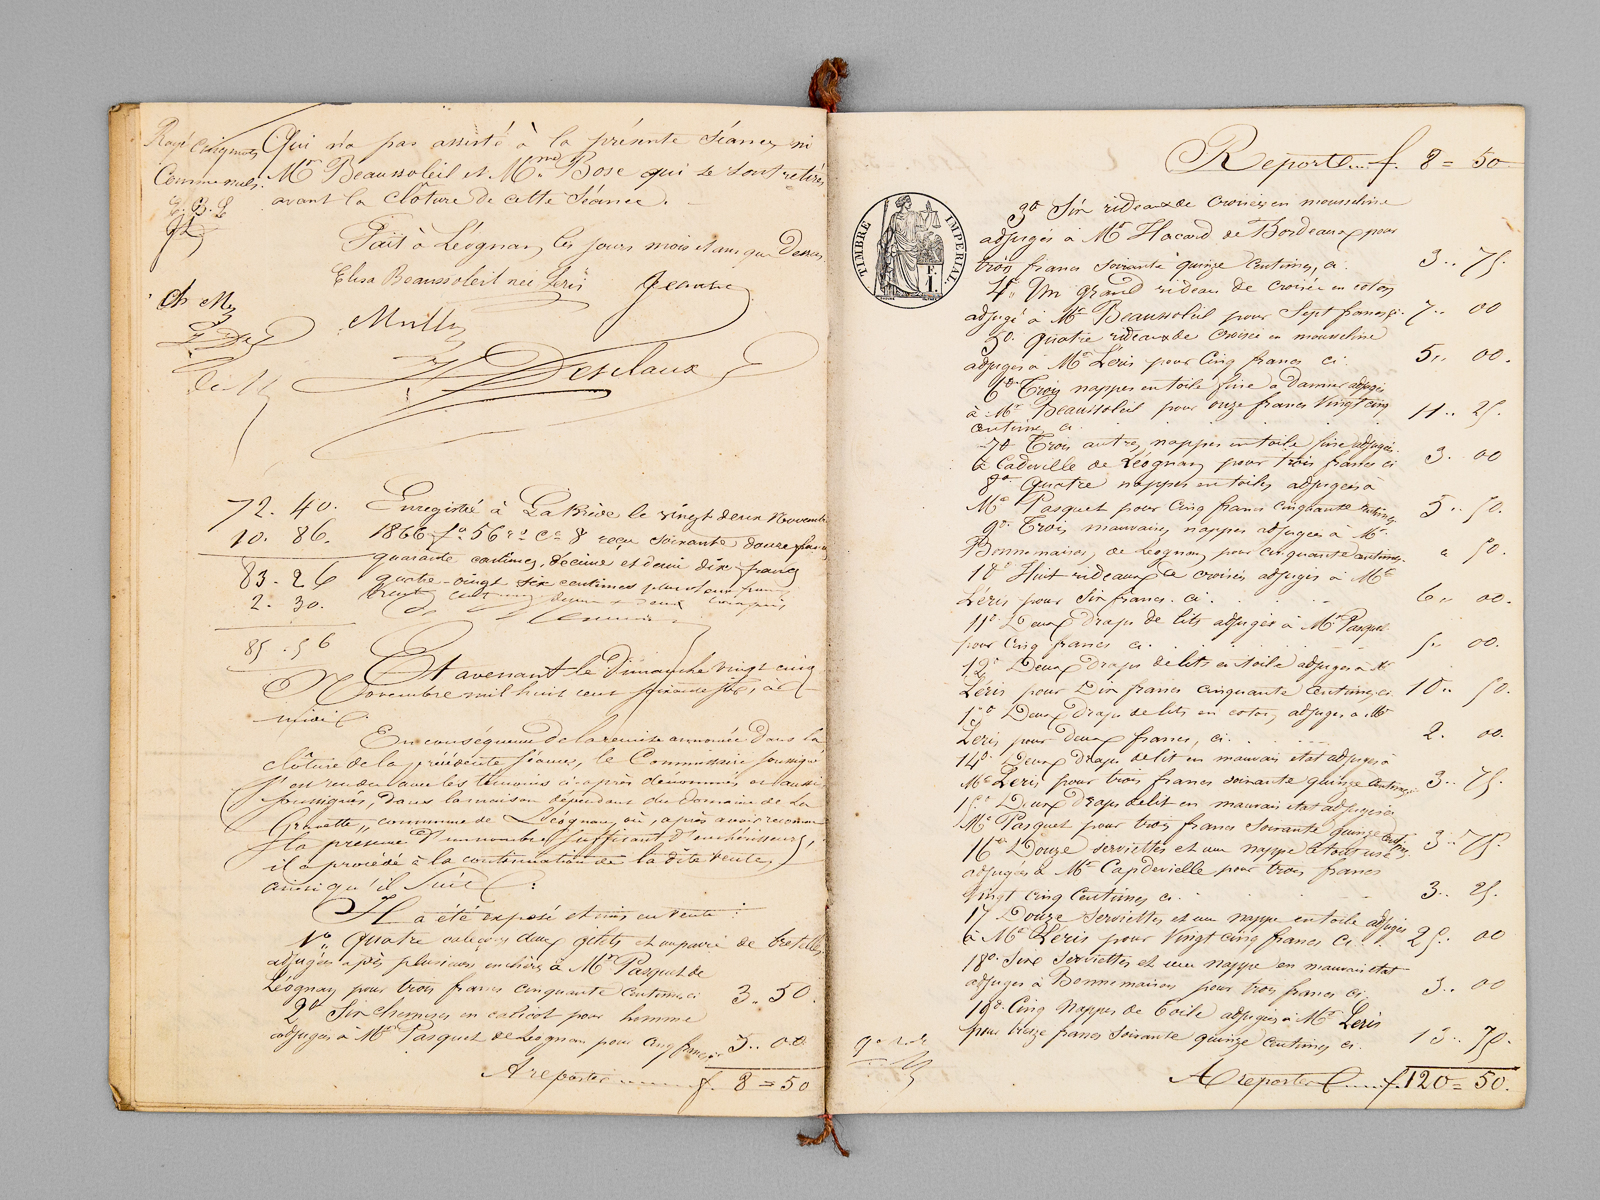 Rayé cinq mots
Qui n'a pas assisté à la présente séance, ni
Mr Beaussoleil et Mme Bose qui se sont retirés
avant la clôture de cette séance.
Fait à Léognan, les jours mois et an que Dessus.
Elisa Beaussoleil née Léris
Deslaux
72. 40.
10. 86.
83. 26
2. 30.
85. 56
Enregistré à La Brède le vingt deux Novembre
1866 fo 56 ro ce 8 reçu soixante douze francs
quarante centimes, décime et demi dix francs
quatre-vingt six centimes plus deux francs
trente centimes
Et avenant le Dimanche vingt cinq
Novembre mil huit cent soixante six, à
midi.
En conséquence de la remise annoncée dans la
clôture de la précédente séance, le Commissaire soussigné
s'est rendu avec les témoins ci-après dénommés et aussi
soussignés, dans la maison dépendant du domaine de La
Gravette, commune de Léognan, où, après avoir reconnu
la présence d'un nombre suffisant d'enchérisseurs,
il a procédé à la continuation de la dite vente,
ainsi qu'il suit :
Il a été exposé et mis en vente :
1o Quatre caleçons deux gilets et une paire de bretelles
adjugés après plusieurs enchères à Mr Pasquet de
Léognan pour trois francs cinquante centimes ci 3.. 50.
2o Six chemises en calicot pour homme
adjugées à Mr Pasquet de Léognan pour cinq francs 5.. 00
A reporter ...... f. 8 = 50
Reporté... f. 8 = 50
TIMBRE IMPERIAL.
F.
1.
3o Six rideaux de croisées en mousseline
adjugés à Mr Hacard de Bordeaux pour
trois francs soixante quinze centimes, ci. 3.. 75.
4o Un grand rideau de croisée en coton
adjugé à Mr Beaussoleil pour Sept francs ci. 7.. 00
5o Quatre rideaux de croisée en mousseline
adjugés à Mr Léris pour Cinq francs ci. 5.. 00.
6o Trois nappes en toile fine à Damier adjugées
à Mr Beaussoleil pour onze francs vingt cinq
centimes, ci. 11.. 25.
7o Trois autres nappes en toile fine adjugées
à Cadeville de Léognan, pour trois francs ci 3.. 00
8o Quatre nappes en toiles adjugées à
Mr Pasquet pour cinq francs cinquante centimes 5.. 50.
9o Trois mauvaises nappes adjugées à Mr
Bonnemaison, de Léognan, pour cinquante centimes. " 50.
10o Huit rideaux de croisées adjugés à Mr
Léris pour Six francs. ci. 6.. 00.
11o Deux draps de lits adjugés à Mr Pasquet
pour cinq francs ci. 5.. 00.
12o Deux draps de lits en toile adjugés à Mr
Léris pour Dix francs cinquante centimes ci. 10.. 50.
13o Deux draps de lits en coton, adjugés à Mr
Leris pour deux francs, ci. 2.. 00.
14o Deux draps de lit en mauvais état adjugés à
Mr Leris pour trois francs soixante quinze centimes 3.. 75.
15o Deux draps de lit en mauvais état adjugés à
Mr Pasquet pour trois francs soixante quinze centimes 3.. 75.
16o Douze serviettes et une nappe
adjugées à Mr Capdevielle pour trois francs
vingt cinq centimes ci. 3.. 25.
17 Douze serviettes et une nappe en toile adjugées
à Mr Léris pour Vingt cinq francs ci. 25.. 00
18o. serviettes et une nappe en mauvais état
adjugées à Bonnemaison pour trois francs ci. 3.. 00
19o. Cinq nappes de toile adjugées à Mr Leris
pour treize francs soixante quinze centimes ci. 13.. 75.
A reporter ..... f. 120 = 50.